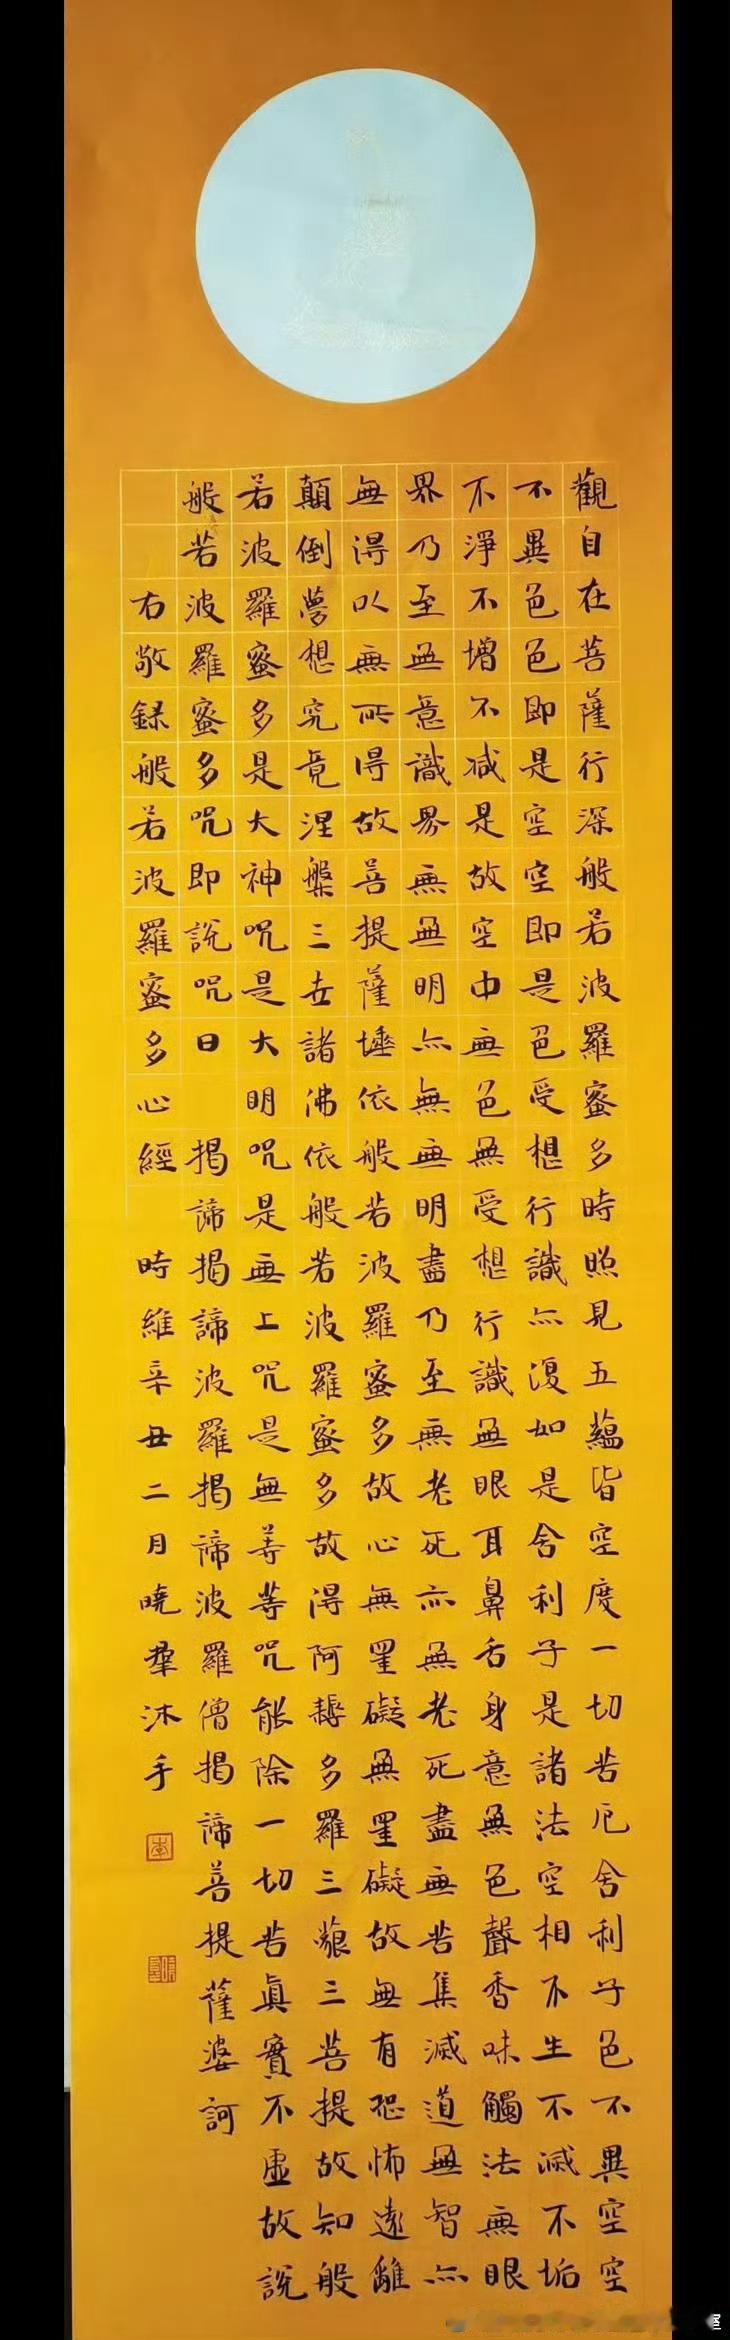 觀自在菩薩行深般若波羅蜜多時照見五蘊皆空度一切苦厄舍利子色不異空空
不異色色即是空空即是色受想行識亦復如是舍利子是諸法空相不生不滅不垢
不淨不增不减是故空中無色無受想行識無眼耳鼻舌身意無色聲香味觸法無眼
界乃至無意識界無無明亦無無明盡乃至無老死亦無老死盡無苦集滅道無智亦
無得以無所得故菩提薩埵依般若波羅蜜多故心無罣礙無罣礙故無有恐怖遠離
顛倒夢想究竟涅槃三世諸佛依般若波羅蜜多故得阿耨多羅三藐三菩提故知般
若波羅蜜多是大神咒是大明咒是無上咒是無等等咒能除一切苦真實不虛故說
般若波羅蜜多咒即說咒曰 揭諦揭諦波羅揭諦波羅僧揭諦菩提薩婆訶
右敬録般若波羅蜜多心經 時維辛丑二月曉羣沐手
李